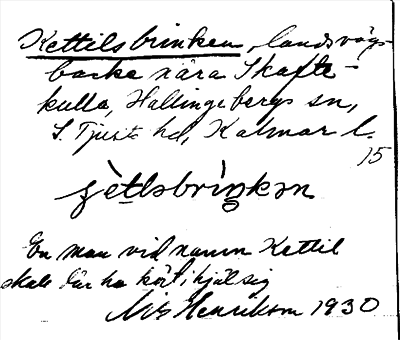 Kettilsbrinken, landsvägs-
backe nära Skafte-
kulla, Hallingebergs sn,
S. Tjust hd, Kalmar l.
15
En man vid namn Kettil
skall där ha kört ihjäl sig
Nils Henrikson 1930